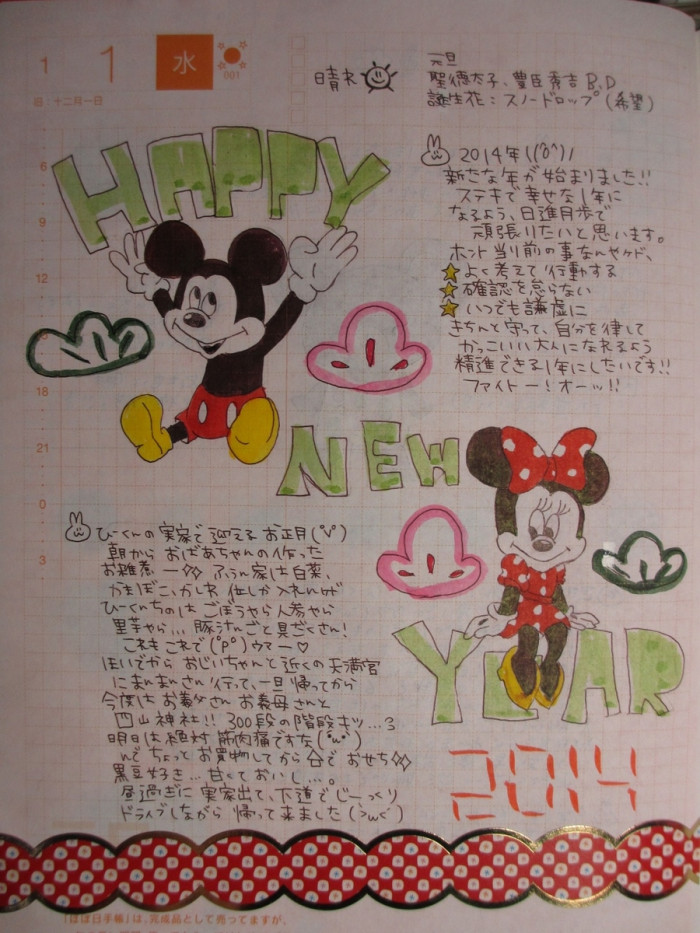 1
1
水
001
旧:十二月一日
晴れ
元旦
聖徳太子、豊臣秀吉 B.D
誕生花:スノードロップ(希望)
HAPPY
2014年\(^o^)/
新たな年が始まりました!!
ステキで幸せな1年に
なるよう、日進月歩で
頑張りたいと思います。
ホント当り前の事なんやケド、
よく考えて行動する
確認を怠らない
いつでも謙虚に
きちんと守って、自分を律して
かっこいい大人になれるよう
精進できる1年にしたいです!!
ファイトー!オーッ!!
6
9
12
18
21
0
3
NEW
ひーくんの実家で迎える お正月(°V°)
朝から おばあちゃんの作った
お雑煮 ー ふぅん家は白菜、
かまぼこ、かしわ 位しか入れんけど
ひーくんちのは ごぼうやら人参やら
里芋やら… 豚汁んごと具だくさん!
これも これで(°p°)ウマー♡
ほいでから おじいちゃんと近くの天満宮
にまんまんさん行って、一旦帰ってから
今度は お義父さん お義母さんと
円山神社!! 300段の階段キツ…
明日は絶対 筋肉痛ですな(°ω°)
んで ちょっと お買物してから 家で おせち
黒豆好き… 甘くて おいし…。
昼過ぎに 実家出て、下道でじーっくり
ドライブしながら 帰って来ました(>ω<)
YEAR
2014
「ほぼ日手帳」は、完成品として売ってますが、